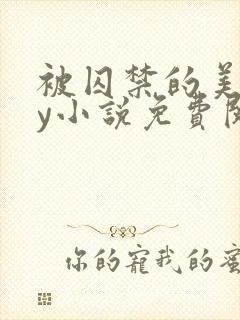 被囚禁的美
y小說免費閱
你的寵我的蜜